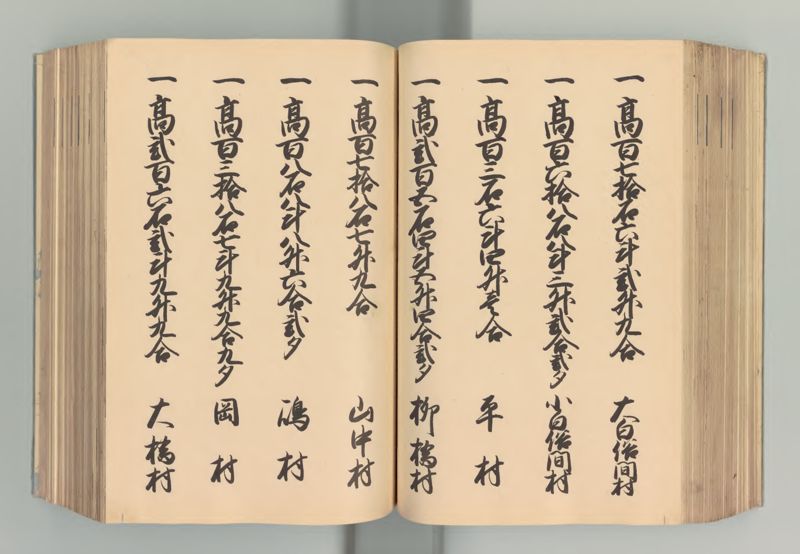 一高百七拾石六斗弐升九合 大白俗間村
一高百六拾八石八斗三升弐合弐夕 小白俗間村
一高百三石六斗四升壱合 平村
一高弐百五石四斗五升四合弐夕 柳橋村
一高百七拾八石七升九合 山中村
一高百八石八斗八升六合弐夕 嶋村
一高百三拾八石七斗九升九合九夕 岡村
一高弐百六石弐斗九升九合 大橋村